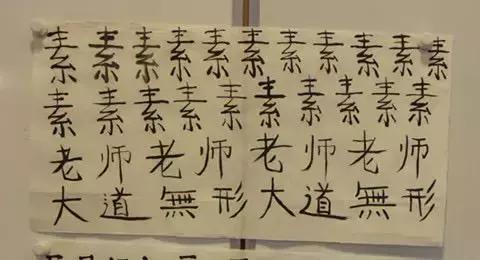 素素素素素素素素素素素
素素素素素素素素素素
老师老师老师老师
大道無形大道無形